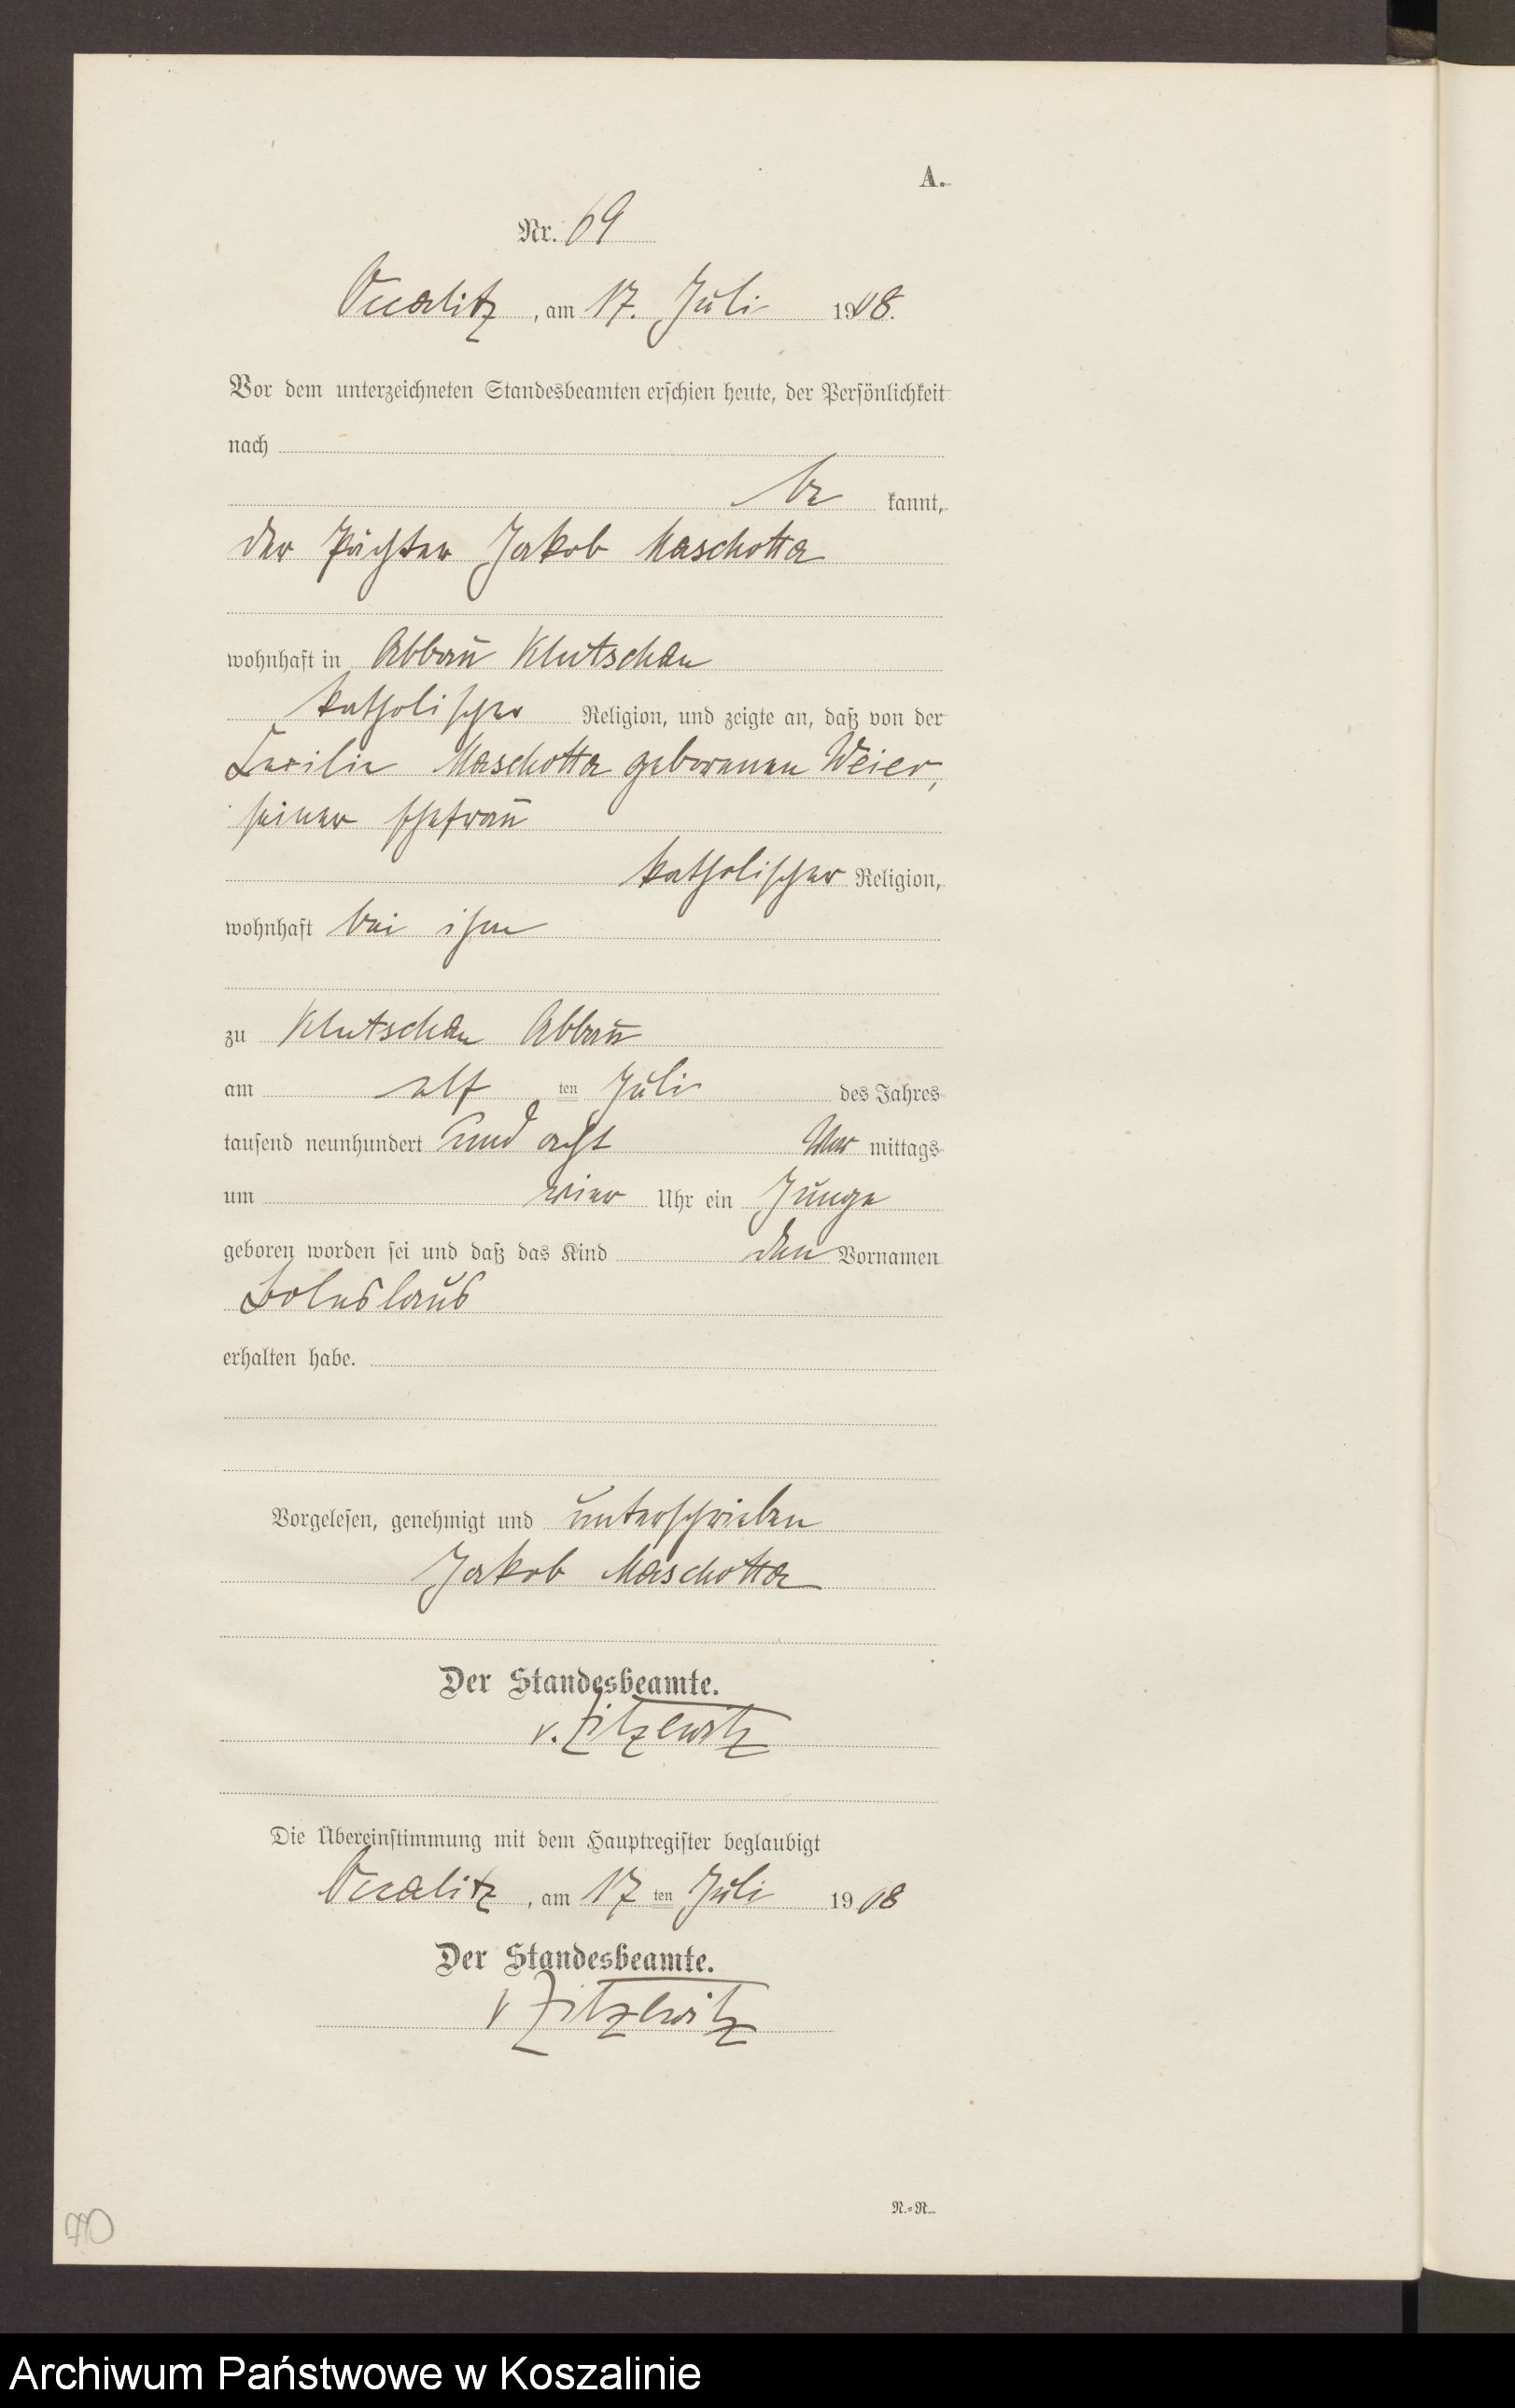 A.
Nr. 69
Occalitz, am 17. Juli 1908.
Vor dem unterzeichneten Standesbeamten erschien heute, der Persönlichkeit
nach
be kannt,
der Pächter Jakob Maschotta
wohnhaft in Abbau Klutschau
katholischer Religion, und zeigte an, daß von der
Maschotta geborenen Weier,
seiner Ehefrau
katholischer Religion,
wohnhaft bei ihm
zu Klutschau Abbau
am elf ten Juli des Jahres
tausend neunhundert und acht Vor mittags
um vier Uhr ein Junge
geboren worden sei und daß das Kind den Vornamen
Boleslaus
erhalten habe.
Vorgelesen, genehmigt und unterschrieben
Jakob Maschotta
Der Standesbeamte.
v. Zitzewitz
Die Übereinstimmung mit dem Hauptregister beglaubigt
Occalitz, am 17 ten Juli 1908
Der Standesbeamte.
v Zitzewitz
N.=R.
70
Archiwum Państwowe w Koszalinie